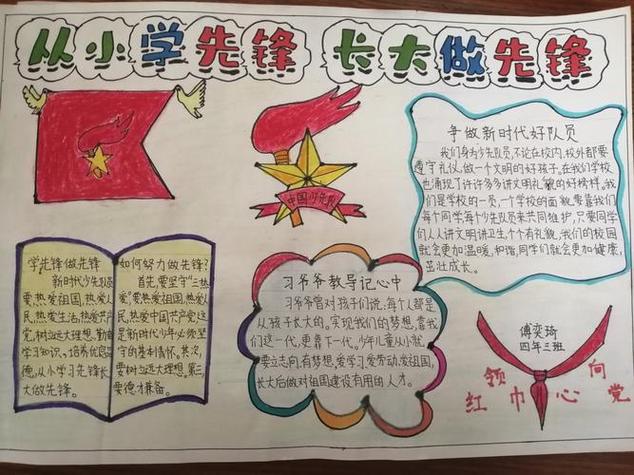 从小学先锋 长大做先锋
中国少先队
争做新时代好队员
我们身为少先队员,不论在校内,校外都要
遵守礼仪,做一个文明的好孩子,在我们学校
也涌现了许许多多讲文明礼貌的好榜样,我
们是学校的一员,一个学校的面貌要靠我们
每个同学每个少先队员来共同维护,只要同学
们人人讲文明讲卫生,个个有礼貌,我们的校园
就会更加温暖,和谐,同学们就会更加健康,
茁壮成长。
学先锋做先锋
新时代少先队员
要热爱祖国,热爱人
民,热爱生活,热爱共产
党,树立远大理想,勤奋
学习知识、培养优良品
德,从小学习先锋长
大做先锋。
如何努力做先锋?
首先,要坚守"三热
爱",要热爱祖国,热爱人
民,热爱中国共产党这
是新时代少年必须坚
守的基本情怀。其次,
要树立远大理想,第三
要德才兼备。
习爷爷教导记心中
习爷爷曾对孩子们说:每个人都是
从孩子长大的。实现我们的梦想,靠我
们这一代,更靠下一代。少年儿童从小就
要立志向,有梦想,爱学习,爱劳动,爱祖国,
长大后做对祖国建设有用的人才。
傅奕琦
四年三班
红领巾心向党